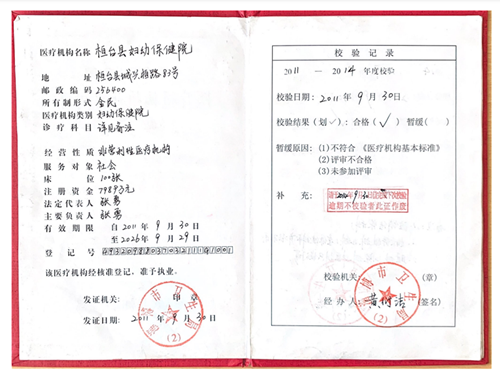 医疗机构名称 桓台县妇幼保健院
地 址 桓台县城兴桓路83号
邮政编码 256400
所有制形式 全民
医疗机构类别 妇幼保健院
诊疗科目 详见备注
经营性质 非营利性医疗机构
服务对象 社会
床 位 100张
注册资金 7989万元
法定代表人 张勇
主要负责人 张勇
有效期限 自2011年9月30日
至2026年9月29日
登记号
该医疗机构经核准登记，准予执业。
发证机关: 印章
发证日期: 2011年9月30日
淄博市卫生局
(2)
校验记录
2011 — 2014年度校验
校验日期: 2011年9月30日
校验结果(划✓): 合格(✓) 暂缓( )
暂缓原因: (1)不符合《医疗机构基本标准》
(2)评审不合格
(3)未参加评审
补 充:
逾期不校验者此证作废
校验机关: (章)
经办人: (签名)
淄博市卫生局
(2)